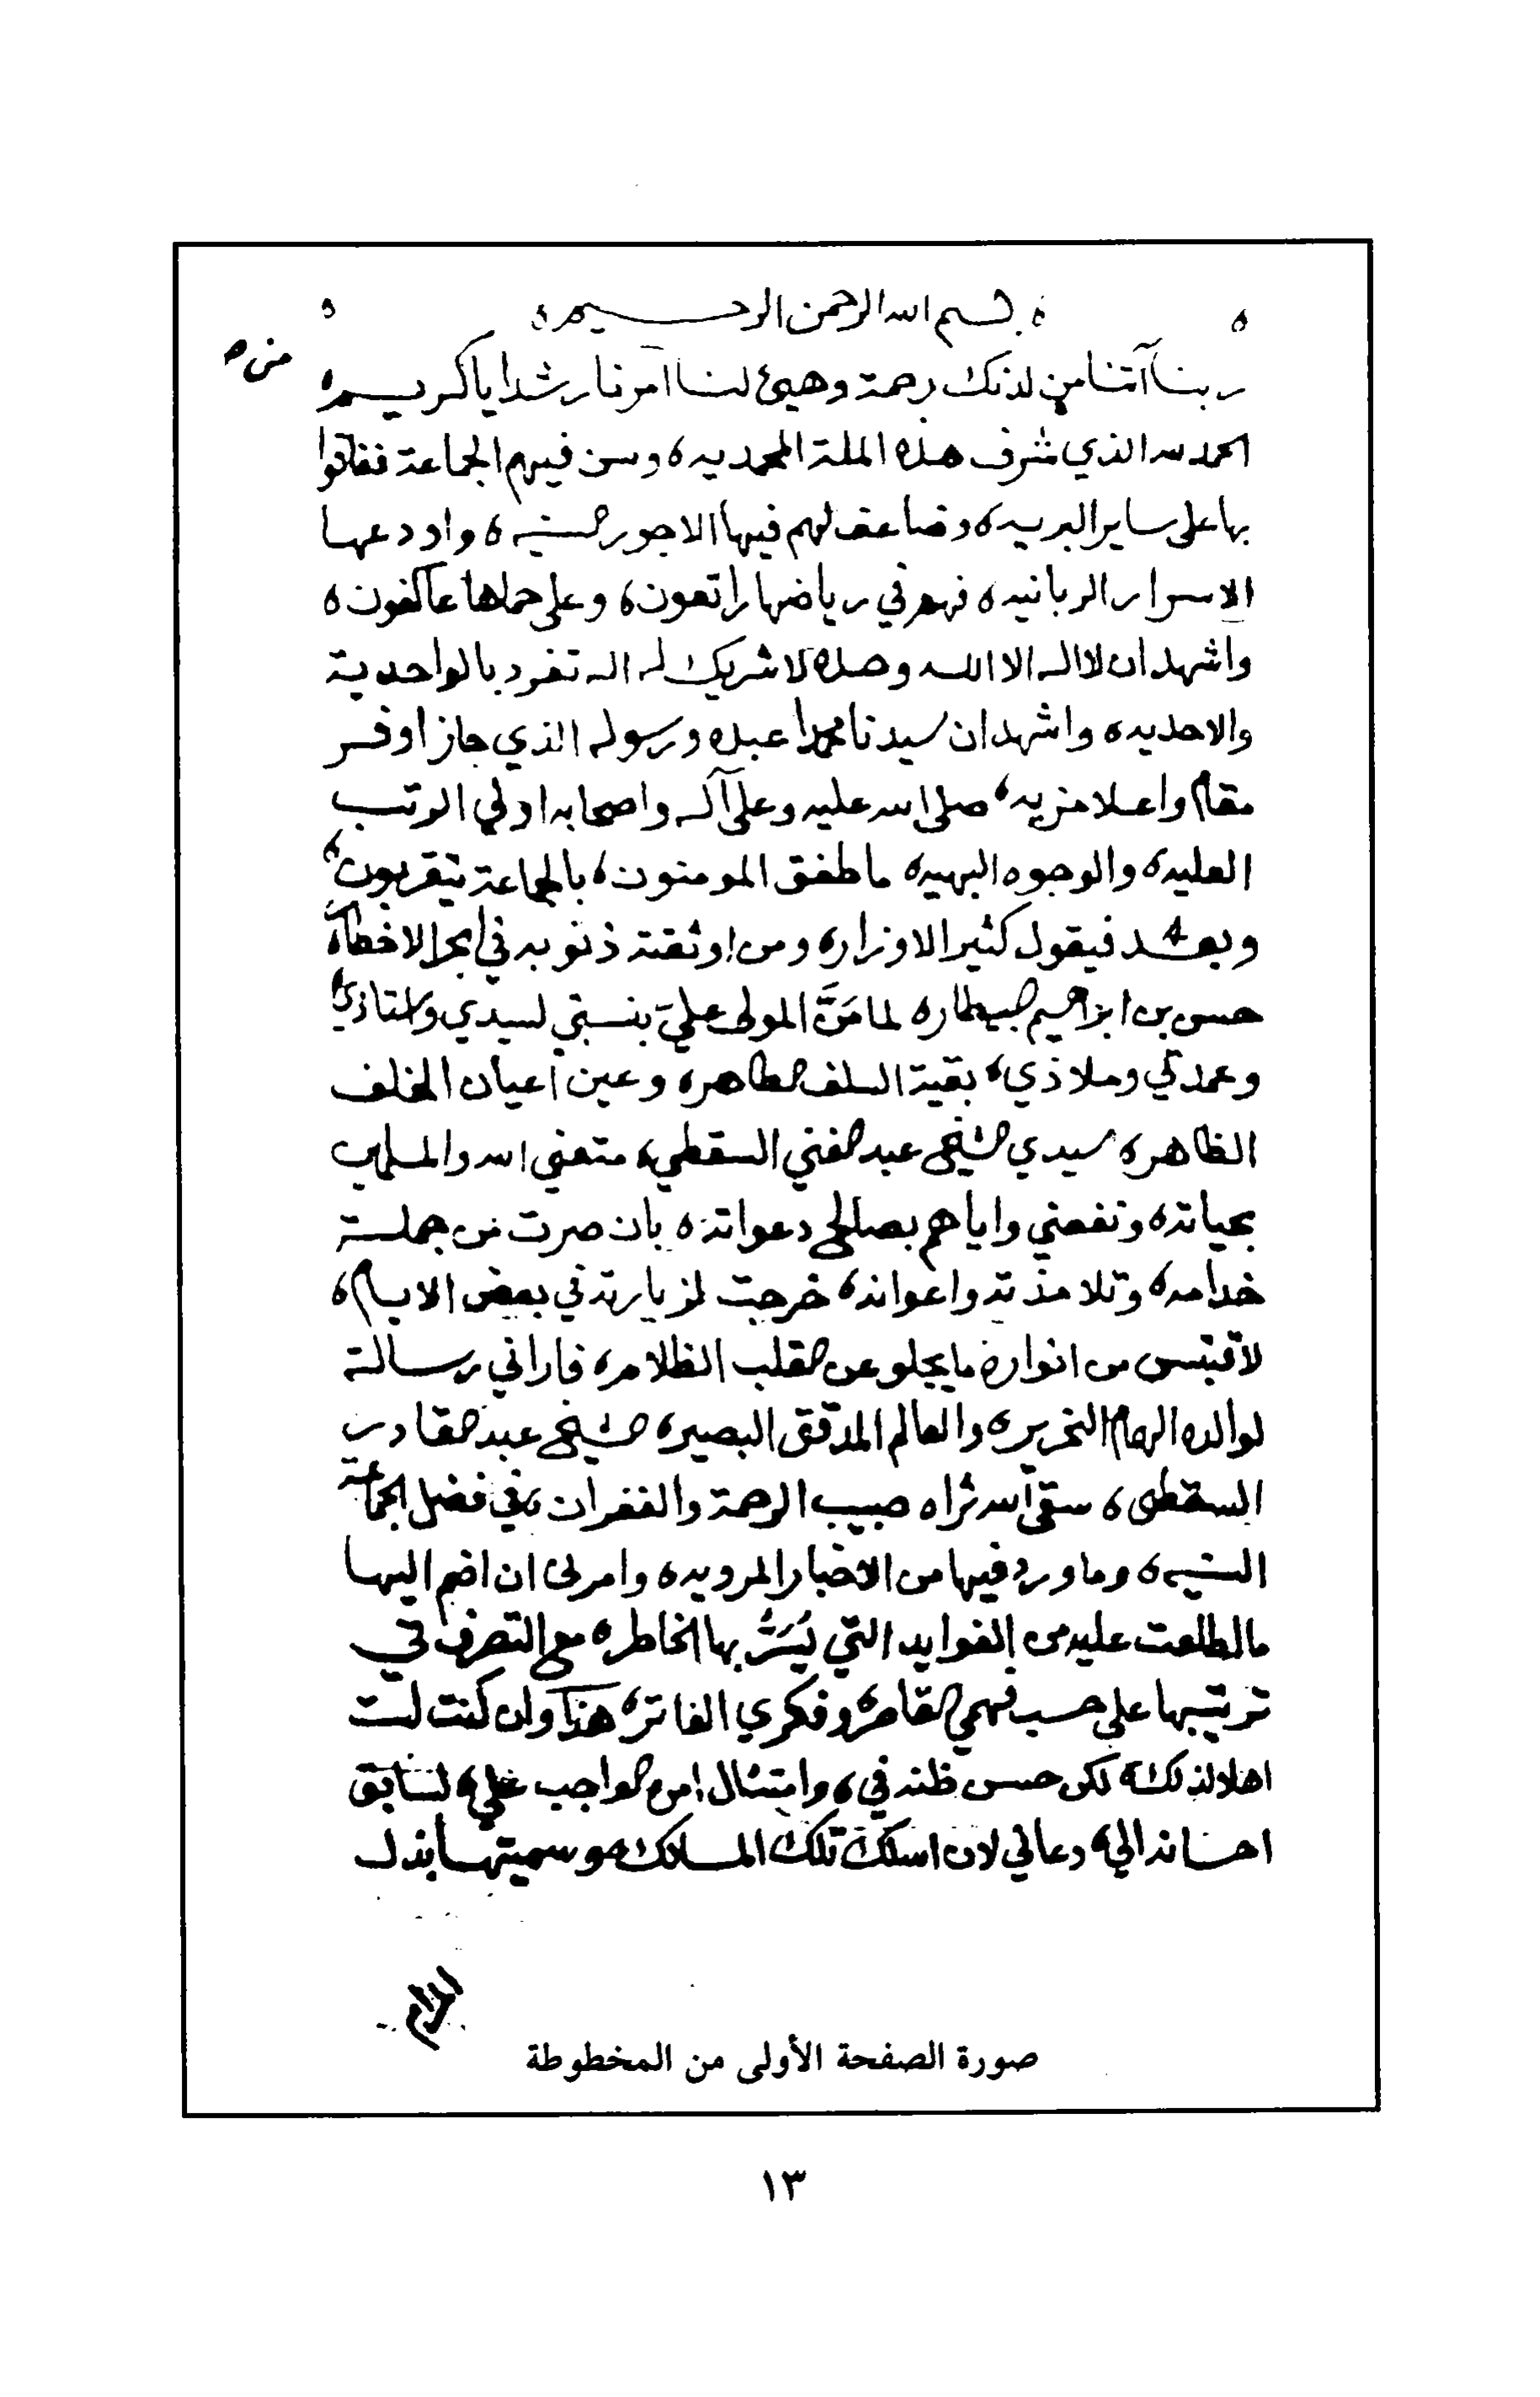 بسم الله الرحمن الرحيم
ربنا آتنا من لدنك رحمة وهيئ لنا من امرنا رشدا يا كريم
الحمد لله الذي شرف هذه الملة المحمديه وسن فيهم الجماعة ففاقوا
بها على ساير البريه وضاعف لهم فيها الاجور السنيه واودعها
الاسرار الربانيه فهم في رياضها راتعون وعلى حماها عاكفون
واشهد ان لا اله الا الله وحده لا شريك له اله تفرد بالواحدية
والاحديه واشهد ان سيدنا محمدا عبده ورسوله الذي حاز اوفر
مقام واعلا مزيه صلى الله عليه وعلى آله واصحابه اولي الرتب
العليه والوجوه البهيه ما طفق المومنون بالجماعة يتقربون
وبعد فيقول كثير الاوزار ومن اوثقته ذنوبه في ابحر الاخطار
حسن بن ابراهيم البيطار لما منَّ المولى عليّ بنسبتي لسيدي واستاذي
وعمدتي وملاذي بقية السلف الطاهر وعين اعيان الخلف
الظاهر سيدي الشيخ عبد الغني السقطي متعني الله والمسلمين
بحياته ونفعني واياهم بصالح دعواته بان صرت من جملة
خدامه وتلامذته واعوانه خرجت لزيارته في بعض الايام
لاقتبس من انواره ما يجلو عن القلب الظلام فاراني رسالة
لوالده الهمام النحرير والعالم المدقق البصير الشيخ عبد القادر
السقطى سقى الله ثراه صبيب الرحمة والغفران في فضل الجماعة
السنيه وما ورد فيها من الاخبار المرويه وامرني ان اضم اليها
ما اطلعت عليه من الفوايد التي يُسَرُّ بها الخاطر مع التصرف في
ترتيبها على حسب فهمي القاصر وفكري الفاتر هذا وان كنت لست
اهلا لذلك لكن حسن ظنه في وامتثال امره الواجب علي لسابق
احسانه الي دعاني لان اسلك تلك المسالك وسميتها بذل
المرام
صورة الصفحة الأولى من المخطوطة
١٣